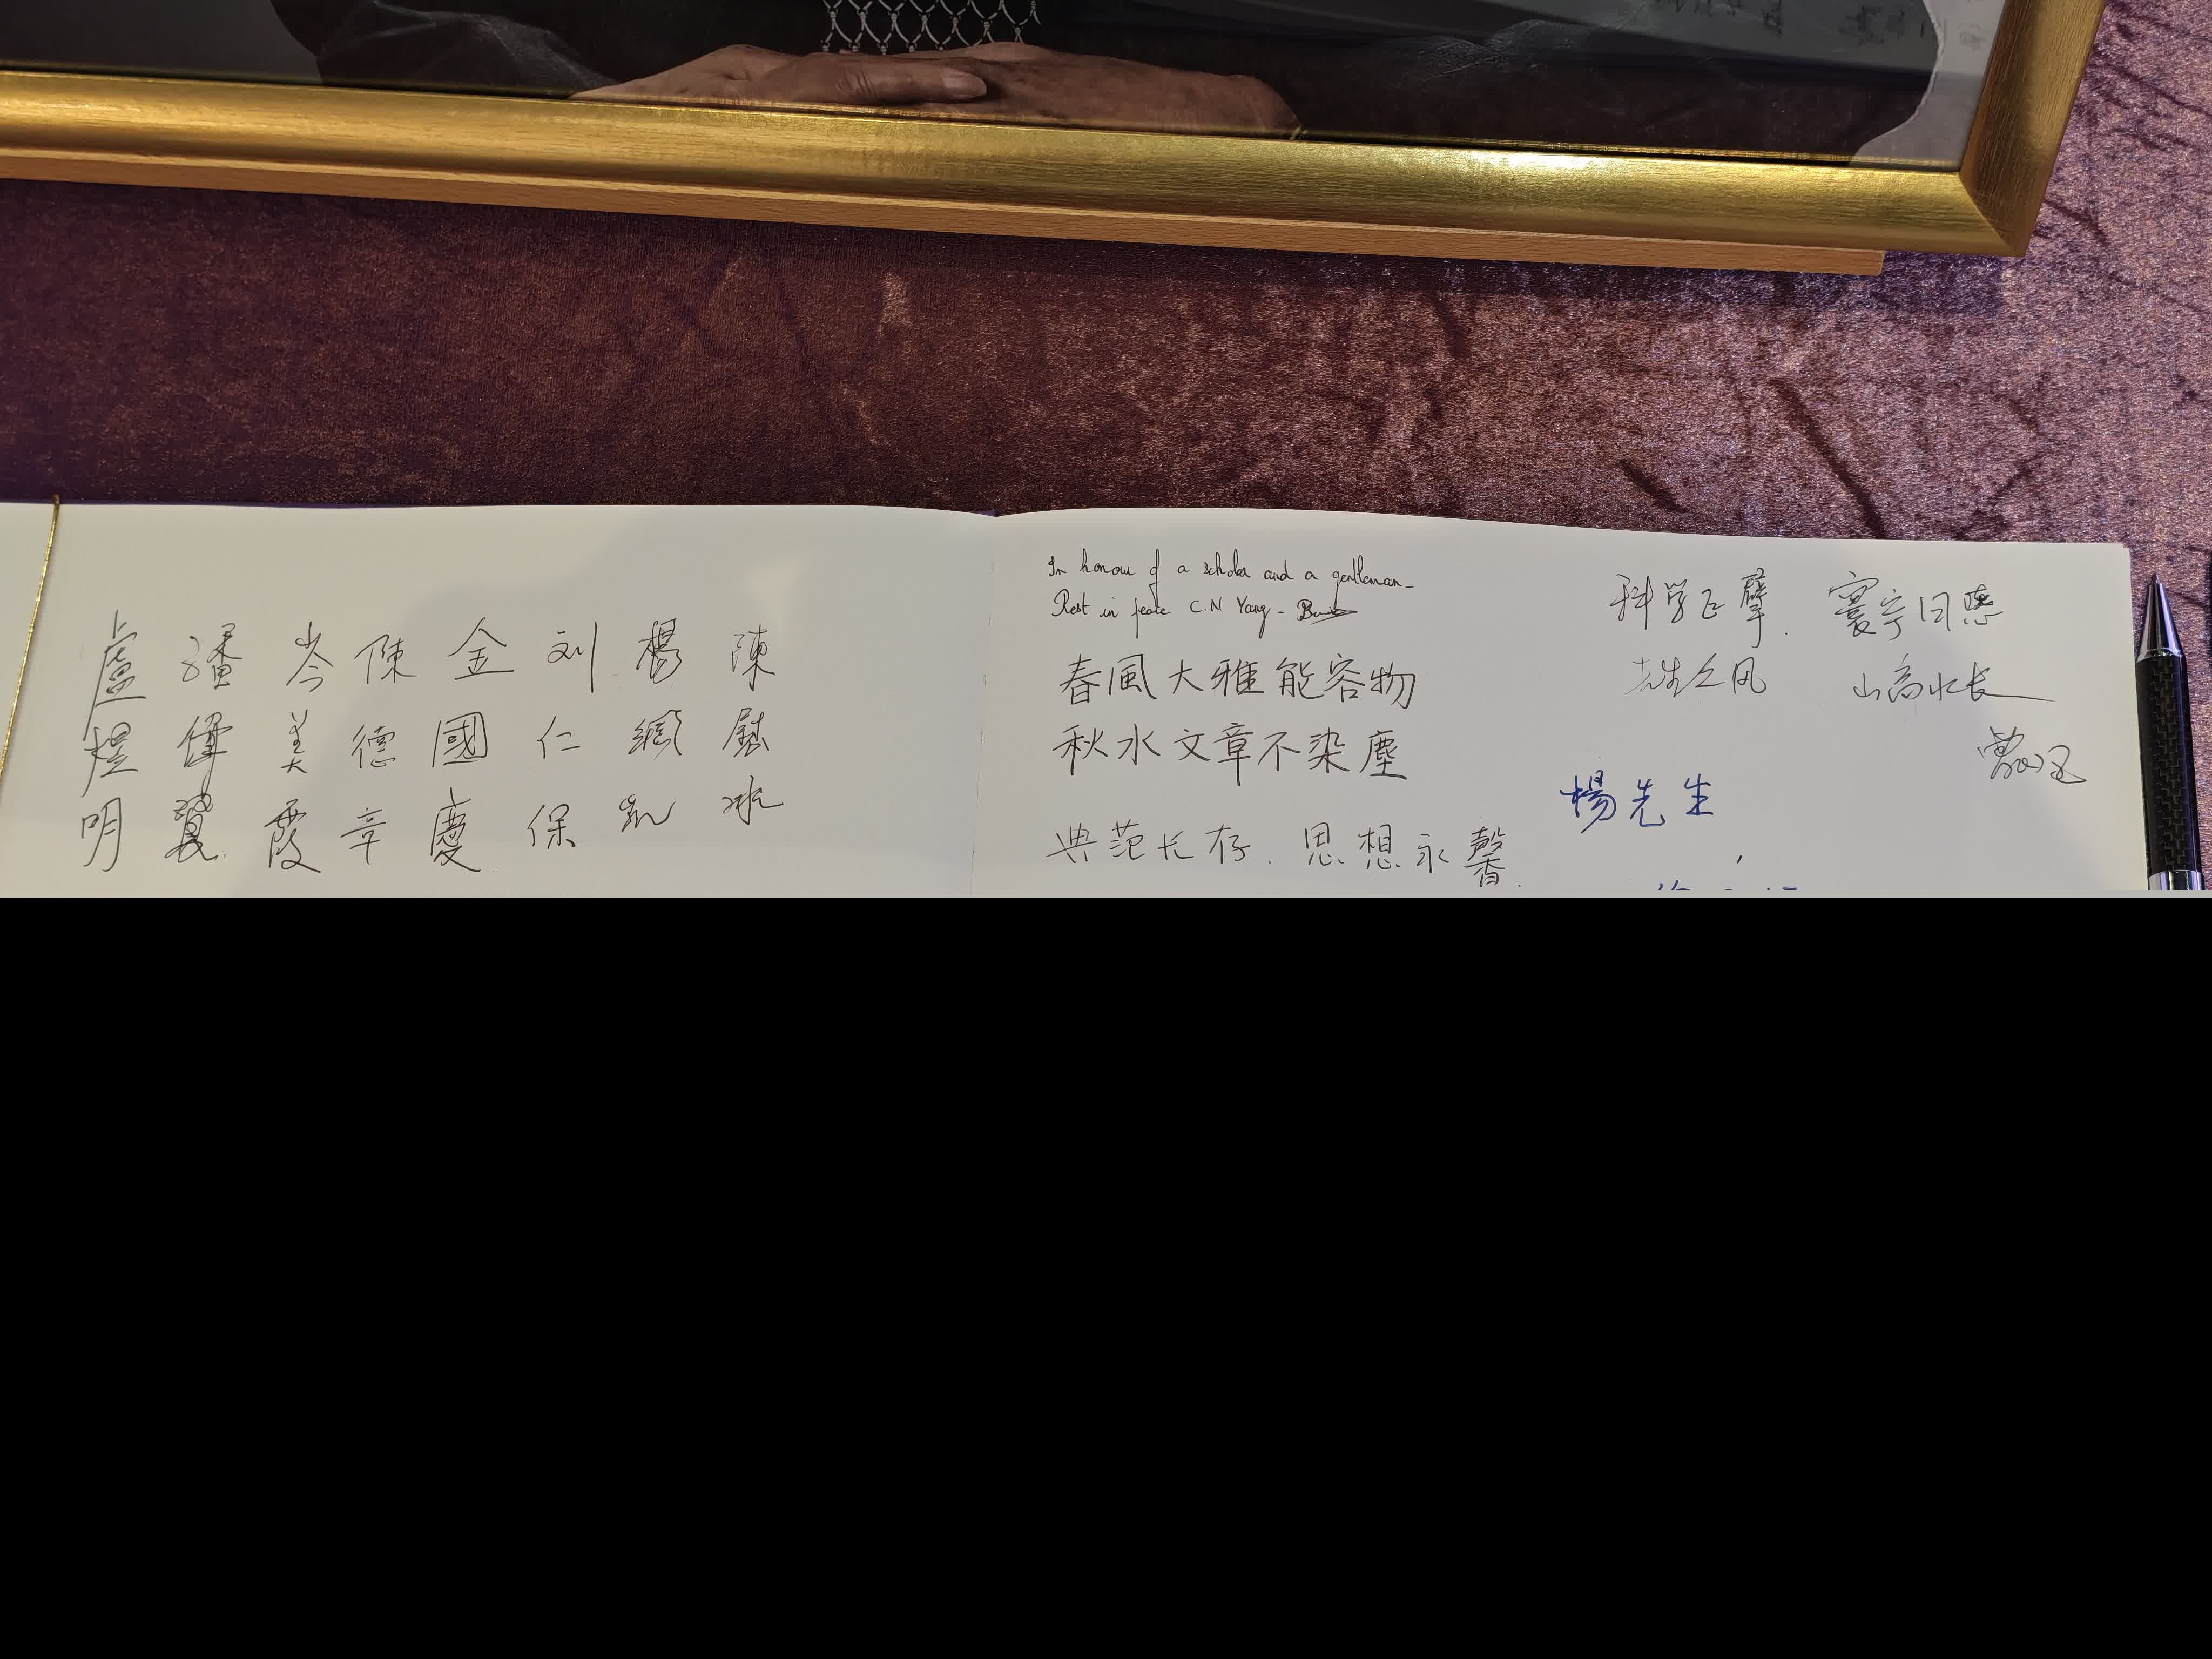 盧煜明
潘偉賢
岑美霞
陳德章
金國慶
刘仁保
楊綱凱
陳
In honour of a scholar and a gentleman -
Rest in peace C.N Yang -
春風大雅能容物
秋水文章不染塵
典范长存. 思想永馨.
科学巨擘. 寰宇同悲
先生之风 山高水长
楊先生
,